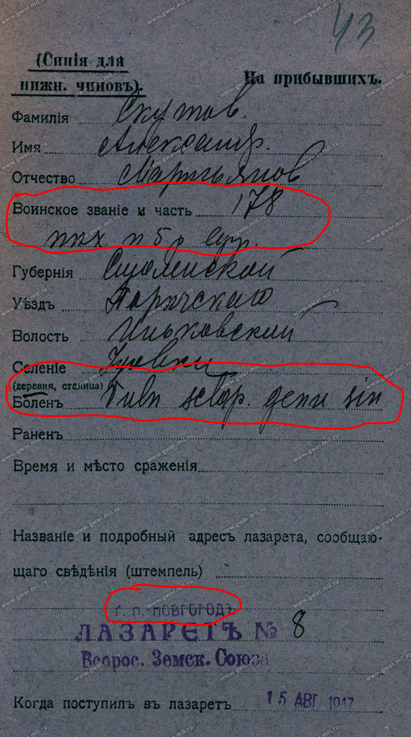 43
(Синія для
нижн. чиновъ).
На прибывшихъ.
Фамилія Скутов.
Имя Александр.
Отчество Мартьянов
Воинское званіе и часть 178
пех п 5 р
Губернія Смоленской
Уѣздъ Порѣчскаго
Волость Иньковский
Селеніе
(деревня, станица)
Боленъ Vuln genu sin
Раненъ
Время и мѣсто сраженія
Названіе и подробный адресъ лазарета, сообщаю-
щаго свѣдѣнія (штемпель)
Г. Н.-НОВГОРОДЪ
ЛАЗАРЕТЪ № 8
Всерос. Земск. Союза
Когда поступилъ въ лазаретъ 15 АВГ 1917
www.gwar.mil.ru